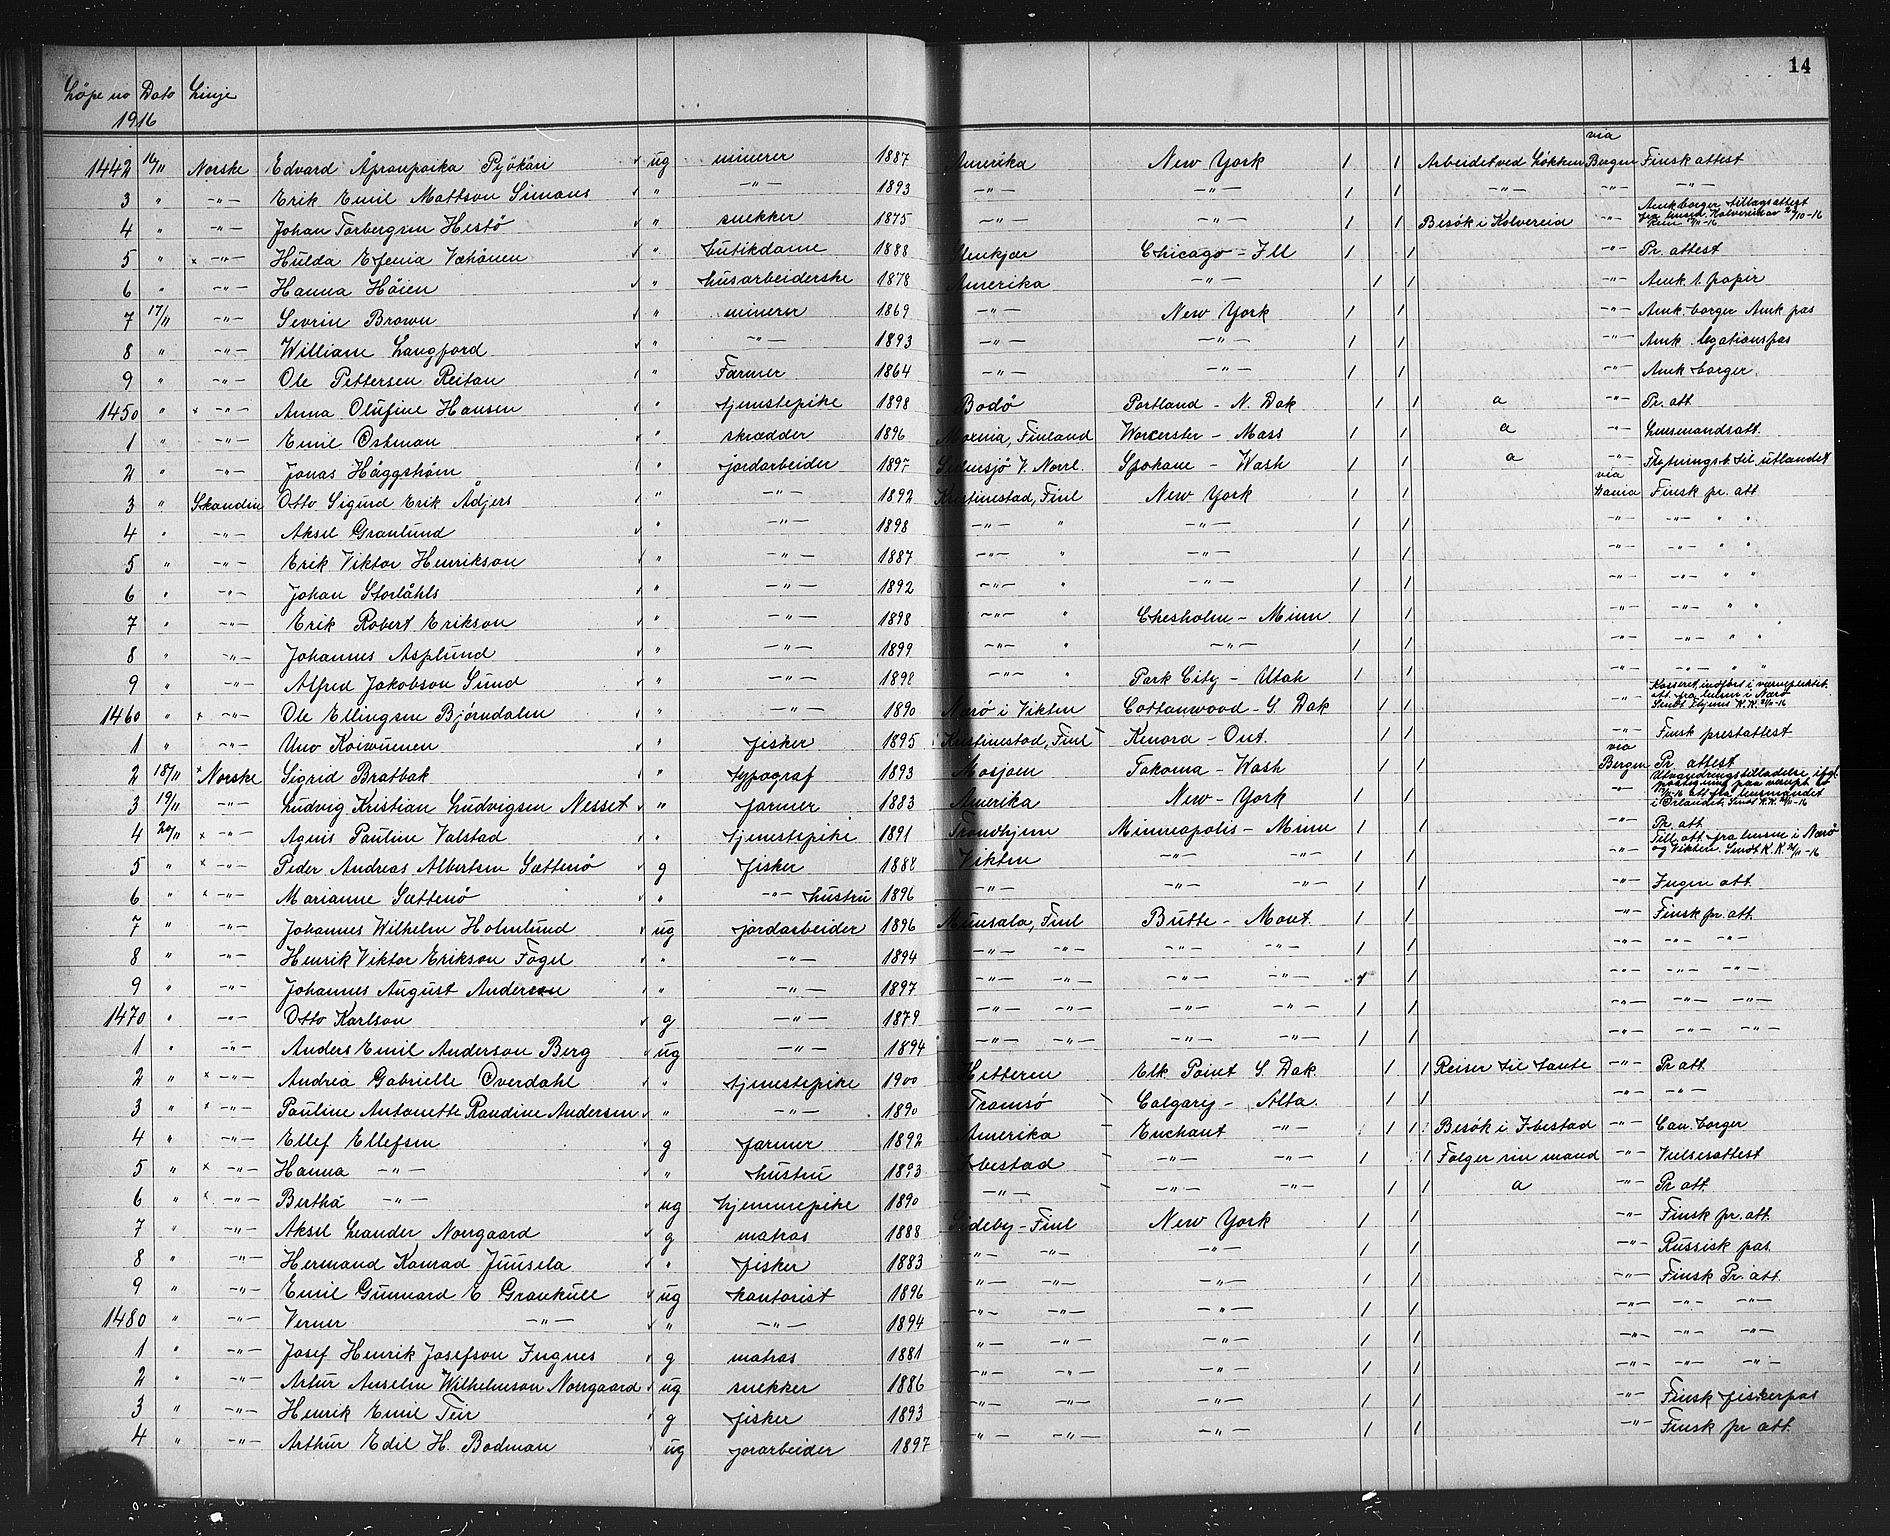 14
Löpe no Dato Linje
1916
via
1442 16/11 Norske Edvard Åpranpoika Pyökäri ug minerer 1887 Amerika New York / / Arbeidet ved Løkken Bergen Finsk attest
3 " -"- Erik Emil Mattson Simons " -"- 1893 -"- -"- / / -"- -"- -"-
4 " -"- Johan Torbergsen Hestö " snekker 1875 -"- -"- / / Besök i Kolvereid -"- Amk borger tillagsattest
5 " x -"- Hulda Efenia " butikdame 1888 Stenkjær Chicago - Ill / / -"- Pr. attest
6 " -"- Hanna Höien " husarbeiderske 1878 Amerika -"- / / -"- Amk. 1. papir
7 17/11 -"- Sevrin Brown " minerer 1869 -"- New York / / -"- Amk. borger Amk pas
8 " -"- William Langford " -"- 1893 -"- -"- / / -"- Amk. legationspas
9 " -"- Ole Pettersen Reitan " Farmer 1864 -"- -"- / / -"- Amk borger
1450 " x -"- Anna Olufine Hansen " tjenestepike 1898 Bodö Portland - N. Dak / / a -"- Pr. att
1 " -"- Emil Ostman " skrædder 1896 Finland Worcerster - Mass / / a -"- Lensmandsatt.
2 " -"- Jonas Häggshöm " jordarbeider 1897 V. Norrl. Spokane - Wash / / a -"- Flytningsb. til utlandet
via
3 " Skandin Otto Sigurd Erik Ådjers " -"- 1892 Kristinestad, Finl New York / / Finsk pr. att
4 " -"- Aksel Granlund " -"- 1898 -"- " -"- / / -"- -"- " "
5 " -"- Erik Viktor Henrikson " -"- 1887 -"- " -"- / / -"- -"- " "
6 " -"- Johan Storlåhls " -"- 1892 -"- " -"- / / -"- -"- " "
7 " -"- Erik Robert Erikson " -"- 1898 -"- " Chesholm - Minn / / -"- -"- " "
8 " -"- Johannes Asplund " -"- 1899 -"- " -"- / / -"- -"- " "
9 " -"- Alfred Jakobson Sund " -"- 1898 -"- " Park City - Utah / / -"- -"- " "
1460 " x -"- Ole Ellingsen Björndalen " -"- 1890 Nærö i Vikten Cottonwood - S. Dak / / -"- att. fra lensm i Nærö
1 " -"- Uno Koivuenen " fisker 1895 Kristinestad, Finl Kenora - Ont. / / -"- Finsk prestattest
via
2 18/11 x Norske Sigrid Bratbak " typograf 1893 Mosjøen Takoma - Wash / / Bergen Pr. attest
3 19/11 -"- Ludvig Kristian Ludvigsen Nesset " farmer 1883 Amerika New - York / / -"- Utvandringstilladelse ifgl.
att fra lensmandet
i Örlandet. Sendt K.K.
4 20/11 x -"- Agnes Pauline Valstad " tjenestepike 1891 Trondhjem Minneapolis - Minn / / -"- Pr. att
5 " x -"- Peder Andreas Albertsen Sættenö g fisker 1888 Vikten -"- -"- / / -"- Till. att. fra lensm i Nærö
og Vikten. Sendt K.K.
6 " x -"- Marianne Sættenö " -"- hustru 1896 -"- -"- -"- / / -"- Ingen att.
7 " -"- Johannes Wilhelm Holmlund ug jordarbeider 1896 Munsala, Finl Butte - Mont. / / -"- Finsk pr. att.
8 " -"- Henrik Viktor Erikson Fogel " -"- 1894 -"- -"- -"- -"- / / -"- -"- -"-
9 " -"- Johannes August Anderson " -"- 1897 -"- -"- -"- -"- / / -"- -"- -"-
1470 " -"- Otto Karlson g -"- 1879 -"- -"- -"- -"- / / -"- -"- -"-
1 " -"- Anders Emil Anderson Berg ug -"- 1894 -"- -"- -"- -"- / / -"- -"- -"-
2 " x -"- Andrea Gabrielle Overdahl " tjenestepike 1900 Hitteren Elk Point S. Dak. / / Reiser til tante -"- Pr att.
3 " x -"- Pauline Antonette Randine Andersen " -"- 1890 Tromsö Calgary - Alta. / / -"- -"-
4 " -"- Ellef Ellefsen g farmer 1892 Amerika Enchant -"- / / Besök i Ibestad -"- Can. borger
5 " x -"- Hanna -"- " hustru 1893 Ibestad -"- -"- / / Følger sin mand -"- Vielsesattest
6 " x -"- Bertha -"- ug hjemmepike 1890 -"- -"- -"- / / a -"- Pr att.
7 " -"- Aksel Leander Norrgaard g matros 1888 Sideby - Finl New York / / -"- Finsk pr. att.
8 " -"- Hermand Konrad Juusela " fisker 1883 -"- -"- -"- / / -"- Russisk pas
9 " -"- Emil Gunnard E Grankull ug kontorist 1896 -"- -"- -"- / / -"- Finsk Pr. att.
1480 " -"- Verner -"- " -"- 1894 -"- -"- -"- / / -"- -"- -"-
1 " -"- Josef Henrik Josefson Ingnes g matros 1881 -"- -"- -"- / / -"- -"- -"-
2 " -"- Artur Anselm Wilhelmson Norrgaard ug snekker 1886 -"- -"- -"- / / -"- -"- -"-
3 " -"- Henrik Emil Teir g fisker 1893 -"- -"- -"- / / -"- Finsk fiskerpas
4 " -"- Arthur Edil H. Bodman ug jorarbeider 1897 -"- -"- -"- / / -"- Finsk pr att.